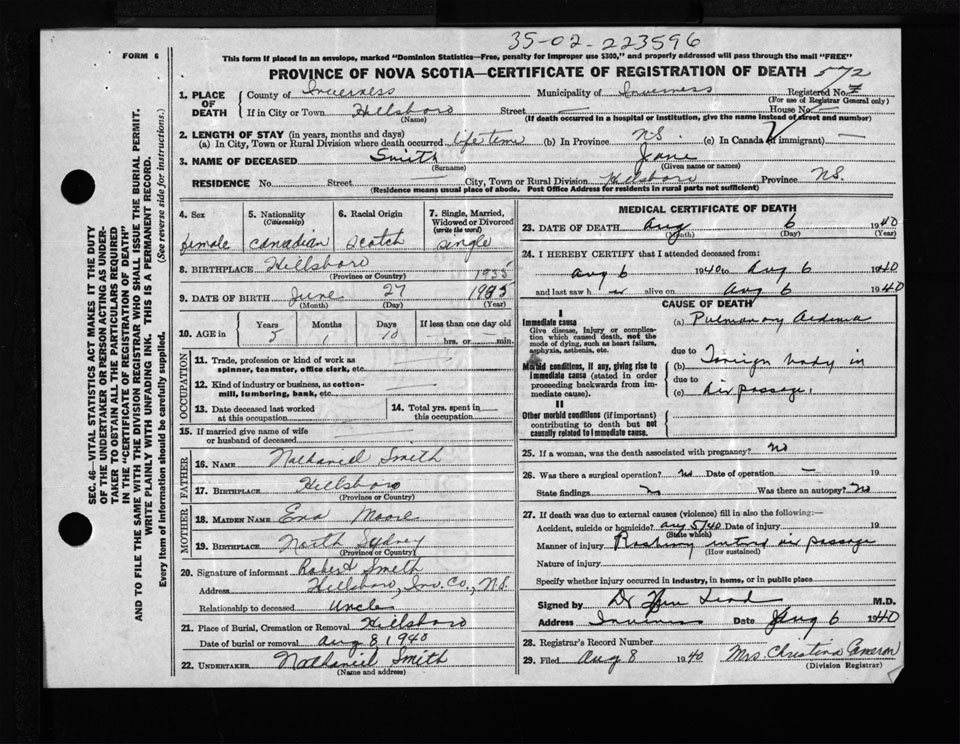 35-02-223596
FORM 6
This form if placed in an envelope, marked "Dominion Statistics—Free, penalty for improper use $300," and properly addressed will pass through the mail "FREE"
PROVINCE OF NOVA SCOTIA—CERTIFICATE OF REGISTRATION OF DEATH 572
1. PLACE OF DEATH
County of Inverness Municipality of Inverness Registered No.
(For use of Registrar General only)
If in City or Town Hillsboro Street — House No. —
(Name) (If death occurred in a hospital or institution, give the name instead of street and number)
2. LENGTH OF STAY (in years, months and days)
(a) In City, Town or Rural Division where death occurred life time (b) In Province N.S. (c) In Canada (if immigrant) —
3. NAME OF DECEASED Smith Jane
(Surname) (Given name or names)
RESIDENCE No. Street — City, Town or Rural Division Hillsboro Province N.S.
(Residence means usual place of abode. Post Office Address for residents in rural parts not sufficient)
4. Sex 5. Nationality (Citizenship) 6. Racial Origin 7. Single, Married, Widowed or Divorced (write the word)
female Canadian Scotch single
8. BIRTHPLACE Hillsboro
(Province or Country) 1935
9. DATE OF BIRTH June 27 1935
(Month) (Day) (Year)
10. AGE in Years Months Days If less than one day old
5 1 10 hrs. or min.
OCCUPATION
11. Trade, profession or kind of work as spinner, teamster, office clerk, etc.
12. Kind of industry or business, as cotton-mill, lumbering, bank, etc.
13. Date deceased last worked at this occupation
14. Total yrs. spent in this occupation
15. If married give name of wife or husband of deceased
FATHER
16. NAME Nathaniel Smith
17. BIRTHPLACE Hillsboro
(Province or Country)
MOTHER
18. MAIDEN NAME Eva Moore
19. BIRTHPLACE North Sydney
(Province or Country)
20. Signature of informant Robert Smith
Address Hillsboro, Inv. Co., N.S.
Relationship to deceased Uncle
21. Place of Burial, Cremation or Removal Hillsboro
Date of burial or removal Aug 8, 1940
22. UNDERTAKER Nathaniel Smith
(Name and address)
MEDICAL CERTIFICATE OF DEATH
23. DATE OF DEATH Aug 6 1940
(Month) (Day) (Year)
24. I HEREBY CERTIFY that I attended deceased from:
Aug 6 1940 to Aug 6 1940
and last saw h er alive on Aug 6 1940
CAUSE OF DEATH
I
Immediate cause (a) Pulmonary Aedema
Give disease, injury or complication which caused death, not the mode of dying, such as heart failure, asphyxia, asthenia, etc.
due to
Morbid conditions, if any, giving rise to immediate cause (stated in order proceeding backwards from immediate cause).
(b) Foreign body in
due to
(c) air passage.
II
Other morbid conditions (if important) contributing to death but not causally related to immediate cause.
25. If a woman, was the death associated with pregnancy? No
26. Was there a surgical operation? No Date of operation — 19
State findings Was there an autopsy? No
27. If death was due to external causes (violence) fill in also the following:—
Accident, suicide or homicide? Aug 5/40 Date of injury 19
(State which)
Manner of injury air passage
(How sustained)
Nature of injury
Specify whether injury occurred in industry, in home, or in public place
Signed by Dr M.D.
Address Inverness Date Aug 6 1940
28. Registrar's Record Number
29. Filed Aug 8 1940 Mrs. Christina Cameron
(Division Registrar)
SEC. 46—VITAL STATISTICS ACT MAKES IT THE DUTY
OF THE UNDERTAKER OR PERSON ACTING AS UNDER-
TAKER TO OBTAIN ALL THE PARTICULARS REQUIRED
IN THE "CERTIFICATE OF REGISTRATION OF DEATH"
AND TO FILE THE SAME WITH THE DIVISION REGISTRAR WHO SHALL ISSUE THE BURIAL PERMIT.
WRITE PLAINLY WITH UNFADING INK. THIS IS A PERMANENT RECORD.
Every item of information should be carefully supplied. (See reverse side for instructions.)